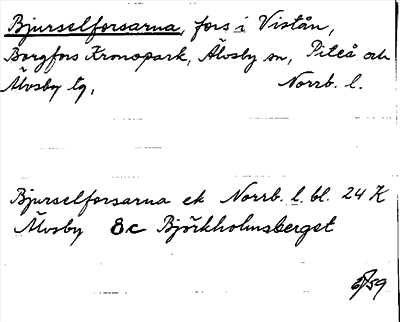 Bjurselforsarna, fors i Vistån,
Borgfors Kronopark, Älvsby sn, Piteå och
Älvsby tg, Norrb. l.
Bjurselforsarna ek Norrb. l. bl. 24 K
Älvsby 8c Björkholmsberget
/59